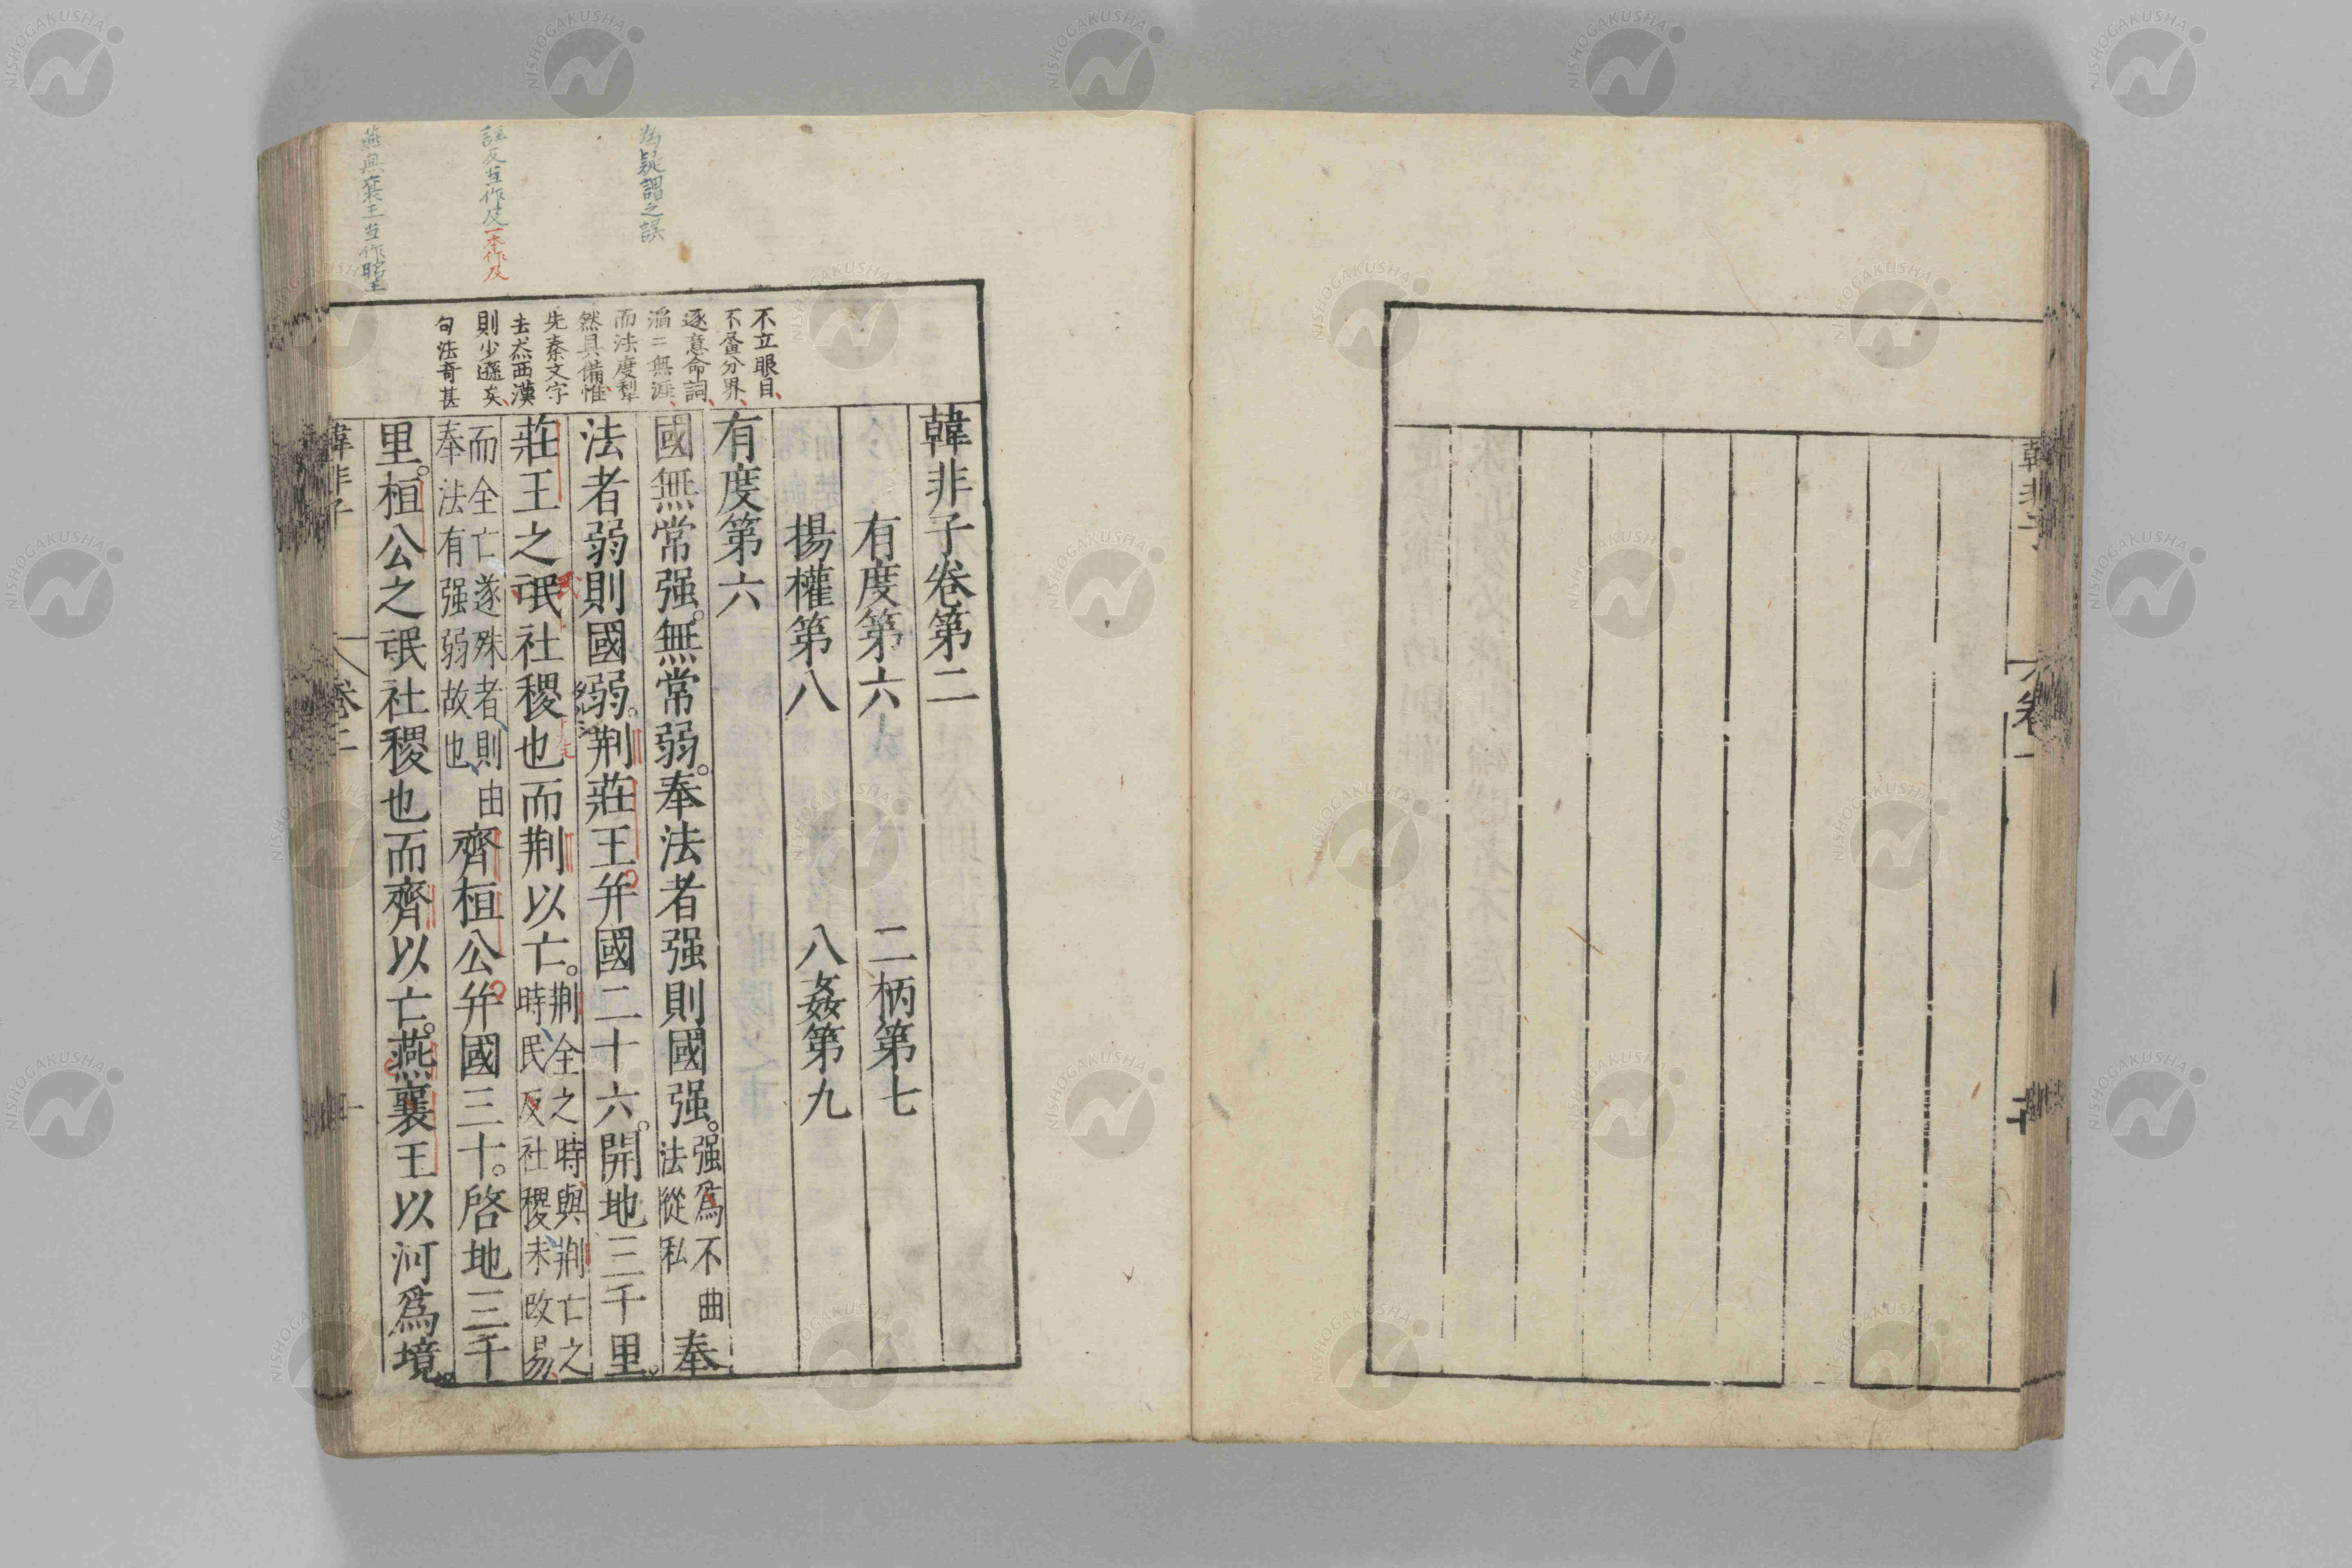 韓非子卷第二
有度第六 二柄第七
揚權第八 八姦第九
有度第六
國無常强。無常弱。奉法者强則國强。强爲不曲法從私奉
法者弱則國弱。荆莊王并國二十六。開地三千里。
莊王之氓社稷也而荆以亡。荆全之時與荆亡之時民反社稷未改易
而全亡遂殊者則由奉法有强弱故也齊桓公并國三十。啓地三千
里。桓公之氓社稷也而齊以亡。燕襄王以河爲境。
不立眼目
不壘分界
逐意命詞
滔二無涯
而法度犁
然具備惟
先秦文字
去炁西漢
則少遜矣
句法奇甚
為疑謂之誤
註反当作及一本作及
燕與襄王当作昭王
韓非子 卷二
韓非子 卷一
NISHOGAKUSHA